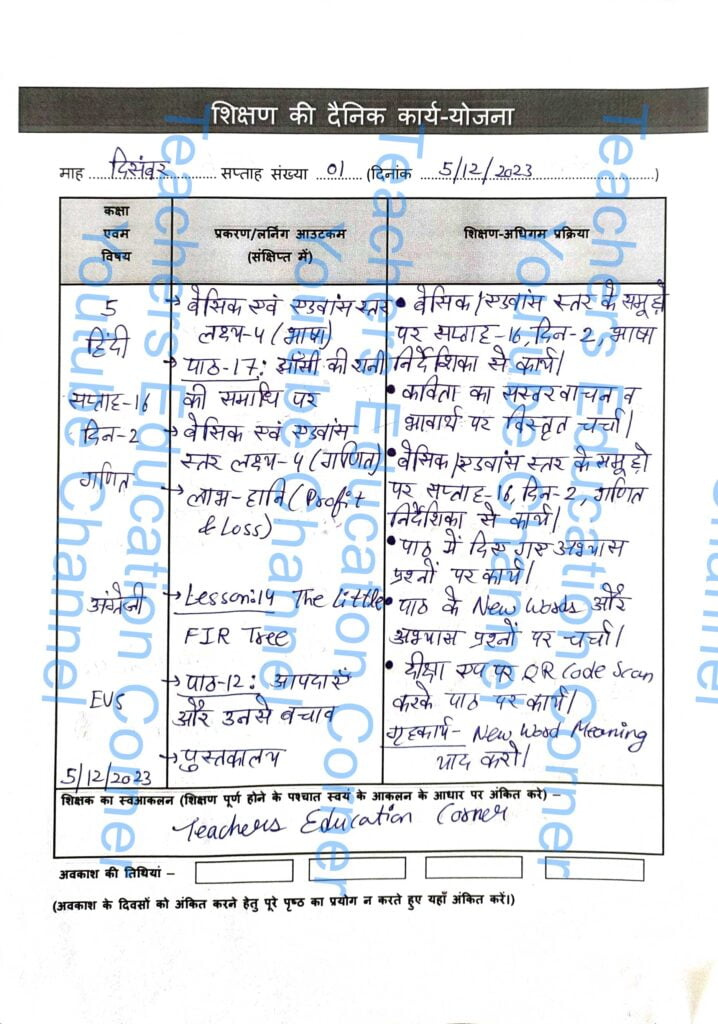 शिक्षण की दैनिक कार्य-योजना
माह दिसंबर सप्ताह संख्या 01 (दिनांक 5/12/2023)
कक्षा
एवम
विषय
प्रकरण/लर्निंग आउटकम
(संक्षिप्त में)
शिक्षण-अधिगम प्रक्रिया
5
हिंदी
सप्ताह-16
दिन-2
गणित
अंग्रेजी
EVS
5/12/2023
→ बेसिक एवं एडवांस स्तर
लक्ष्य-4 (भाषा)
→ पाठ-17: झाँसी की रानी
की समाधि पर
→ बेसिक एवं एडवांस
स्तर लक्ष्य-4 (गणित)
→ लाभ-हानि (Profit
& Loss)
→ Lesson:14 The Little
FIR Tree
→ पाठ-12: आपदाएँ
और उनसे बचाव
→ पुस्तकालय
• बेसिक/एडवांस स्तर के समूहो
पर सप्ताह-16, दिन-2, भाषा
निर्देशिका से कार्य।
• कविता का सस्वर वाचन व
भावार्थ पर विस्तृत चर्चा।
• बेसिक/एडवांस स्तर के समूहो
पर सप्ताह-16, दिन-2, गणित
निर्देशिका से कार्य।
• पाठ में दिए गए अभ्यास
प्रश्नों पर कार्य।
• पाठ के New Words और
अभ्यास प्रश्नों पर चर्चा।
• दीक्षा एप पर QR Code Scan
करके पाठ पर कार्य।
गृहकार्य- New Word Meaning
याद करो।
शिक्षक का स्वआकलन (शिक्षण पूर्ण होने के पश्चात स्वयं के आकलन के आधार पर अंकित करे) –
Teachers Education Corner
अवकाश की तिथियां –
(अवकाश के दिवसों को अंकित करने हेतु पूरे पृष्ठ का प्रयोग न करते हुए यहाँ अंकित करें।)
Teachers Education Corner
Youtube Channel
Teachers Education Corner
Youtube Channel
Teachers Education Corner
Youtube Channel